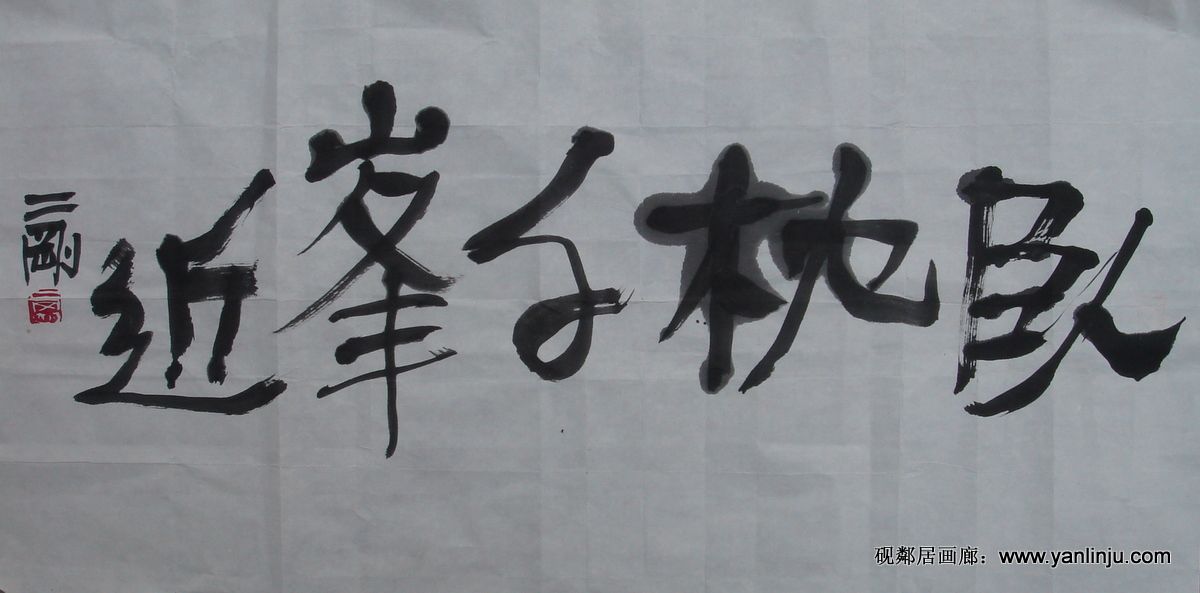 臥枕千峯近
二剛
砚鄰居画廊：www.yanlinju.com